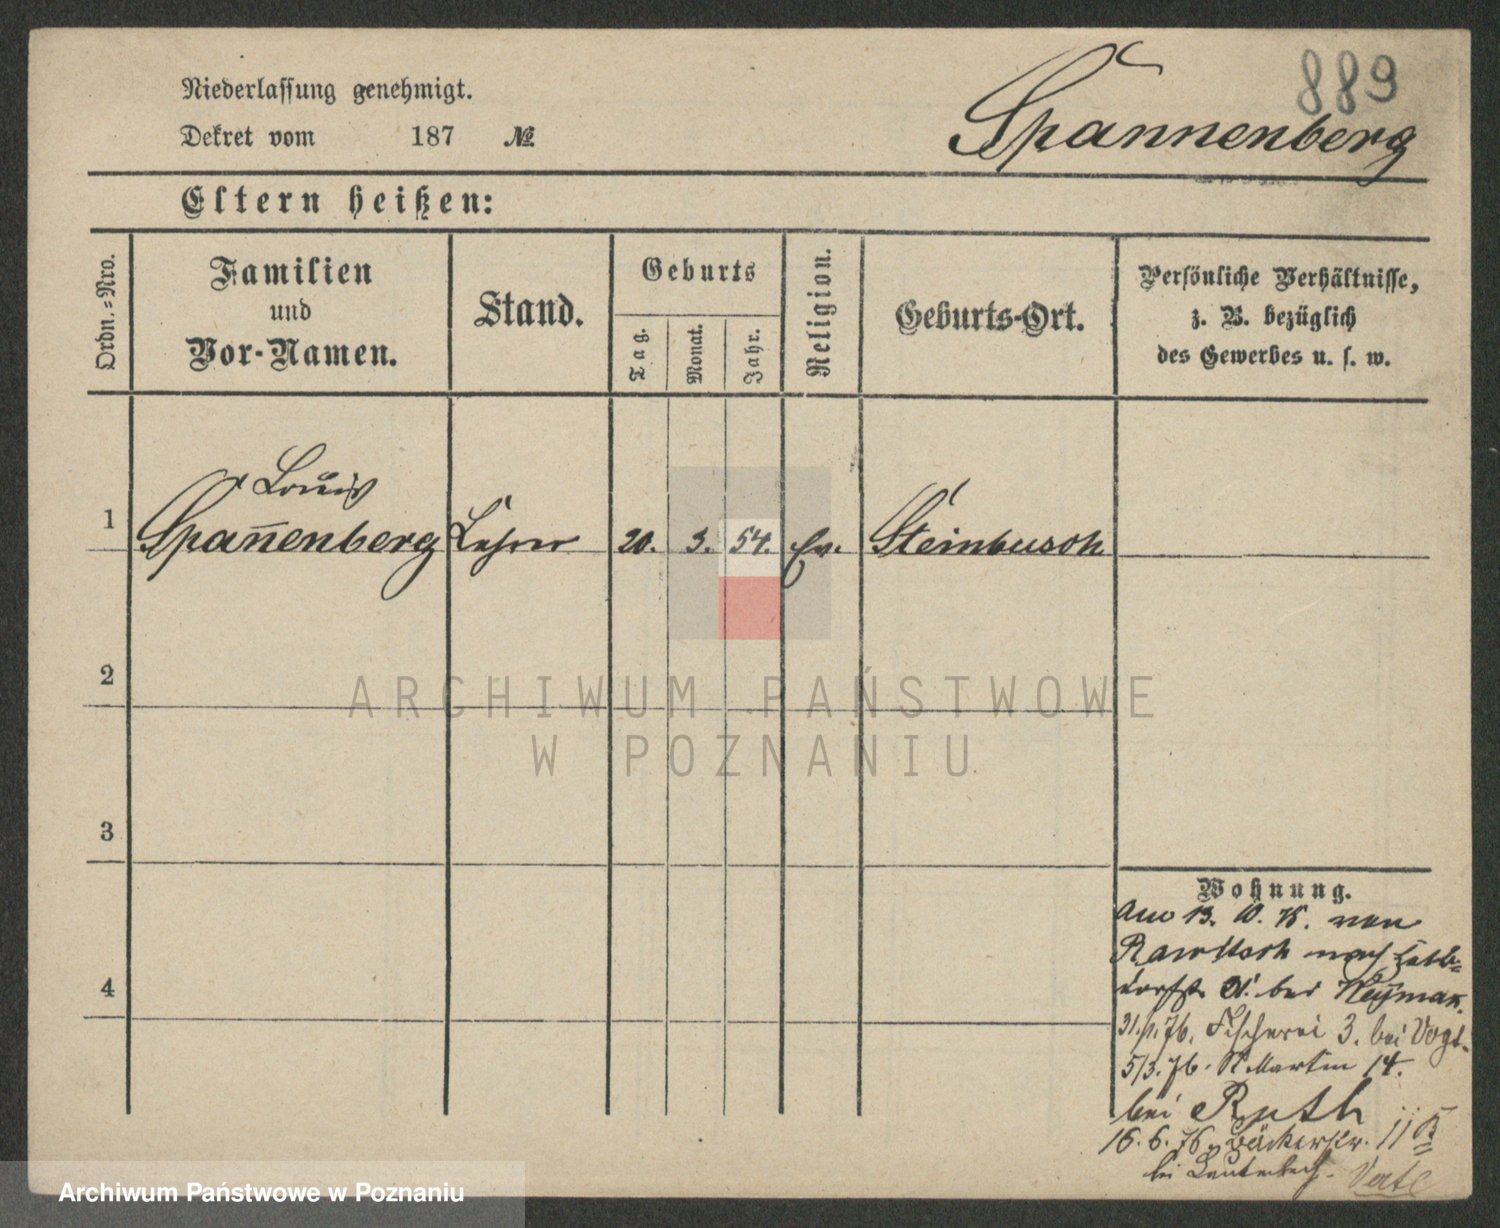 889
Niederlassung genehmigt.
Dekret vom 187 №
Spannenberg
Eltern heißen:
Ordn.-Nro.
Familien
und
Vor-Namen.
Stand.
Geburts
Tag.
Monat.
Jahr.
Religion.
Geburts-Ort.
Persönliche Verhältnisse,
z. B. bezüglich
des Gewerbes u. s. w.
Louis
1 Span̅enberg Lehrer 20. 3. 54. Ev. Steinbusch
2
ARCHIWUM PAŃSTWOWE
W POZNANIU
3
Wohnung.
4
Am 13. 10. 75. von
Rawitsch nach
bei
31./1. 76. Fischerei 3. bei Vogt.
5/3. 76. St. Martin 14.
bei Ruth
16. 6. 76. Bäckerstr. 11
bei
Archiwum Państwowe w Poznaniu